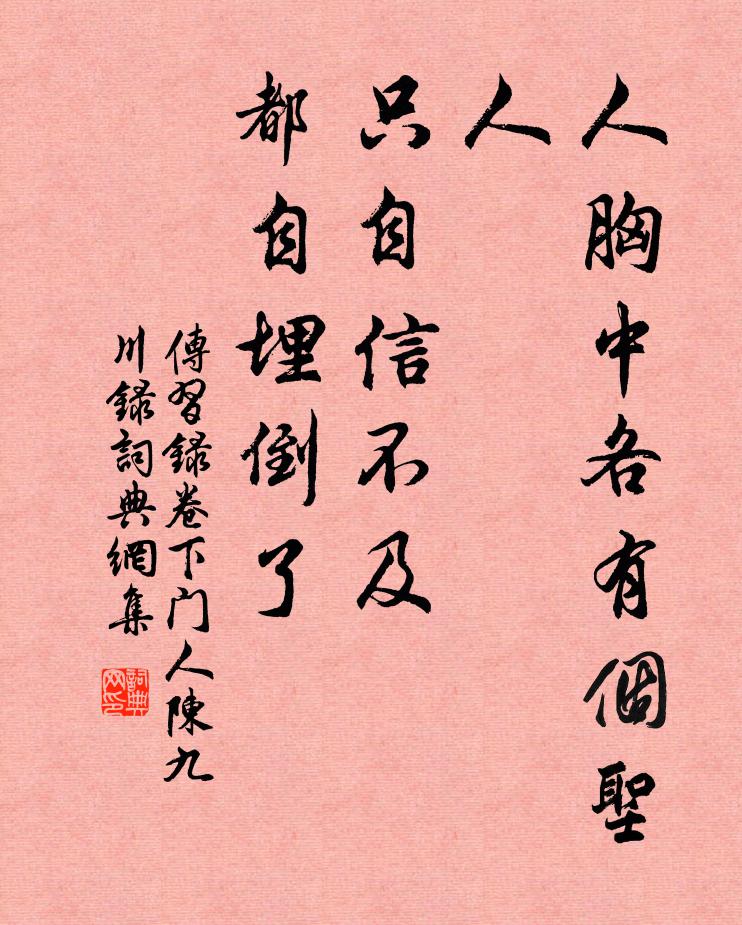 人胸中各有個聖
人
只自信不及
都自埋倒了
傳習録卷下門人陳九
川録詞典網集
詞典网印